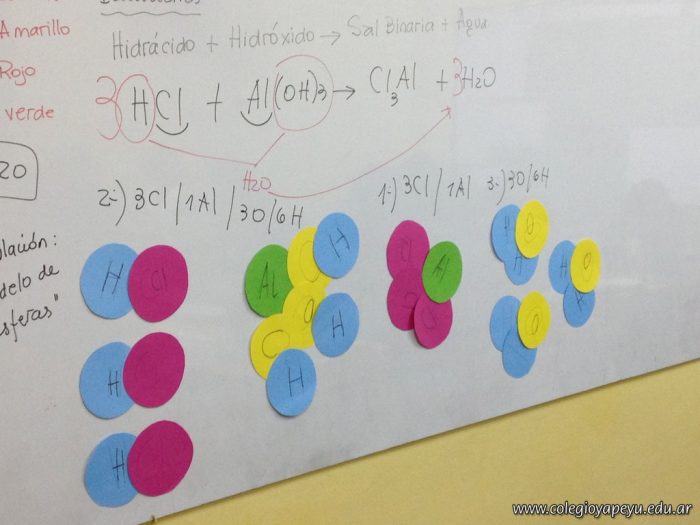 Amarillo
Rojo
verde
Hidrácido + Hidróxido → Sal Binaria + Agua
3 HCl + Al(OH)3 → Cl3Al + 3H2O
H2O
2-) 3Cl/1Al/3O/6H
1-) 3Cl/1Al
3-) 3O/6H
20
lación:
delo de
sferas"
H Cl
H
H
Al O H
O H
O
H
Cl Al
Cl Cl
H O
H
H O
H
O
www.colegioyapeyu.edu.ar